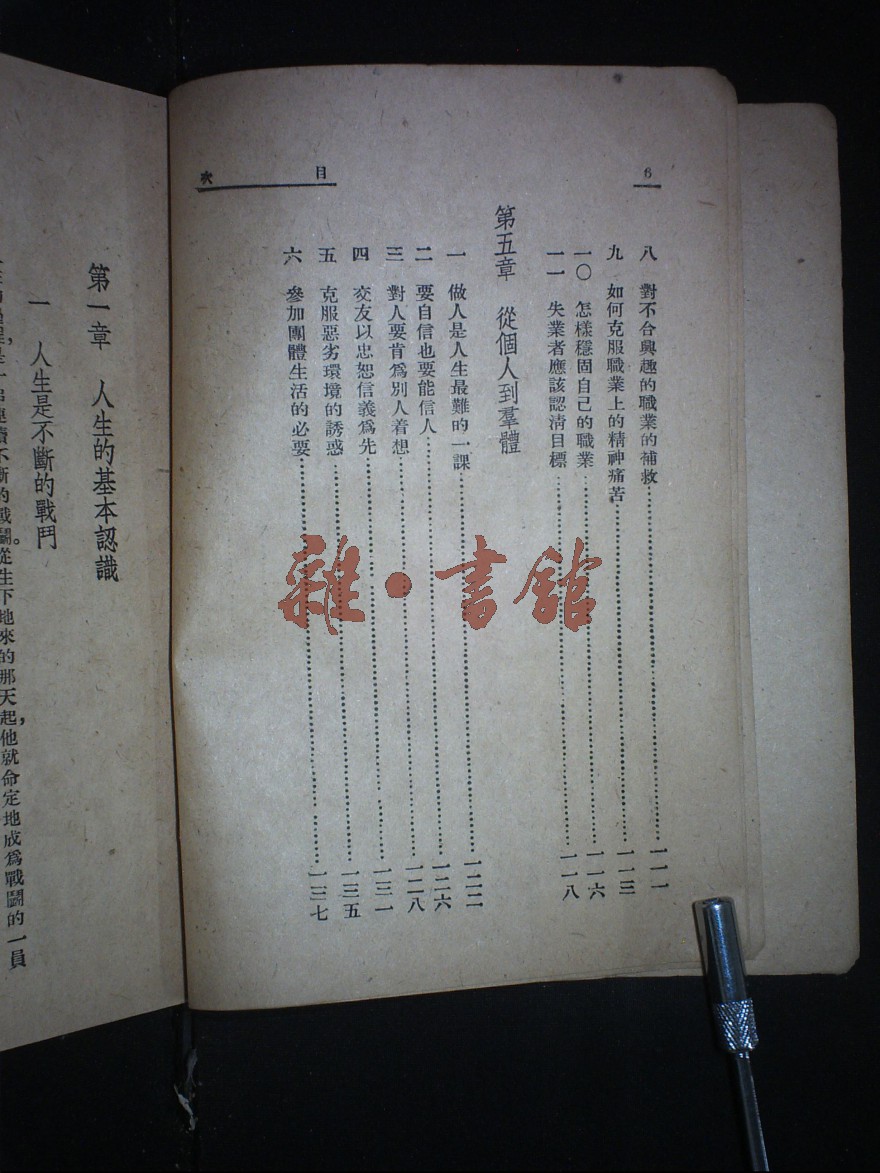 6
目次
八　對不合興趣的職業的補救…………一一一
九　如何克服職業上的精神痛苦…………一一三
一〇　怎樣穩固自己的職業…………一一六
一一　失業者應該認清目標…………一一八
第五章　從個人到羣體
一　做人是人生最難的一課…………一二二
二　要自信也要能信人…………一二六
三　對人要肯爲別人着想…………一二八
四　交友以忠恕信義爲先…………一三一
五　克服惡劣環境的誘惑…………一三五
六　參加團體生活的必要…………一三七
雜·書館
第一章　人生的基本認識
一　人生是不斷的戰鬥
連續不斷的戰鬭。從生下地來的那天起，他就命定地成爲戰鬭的一員